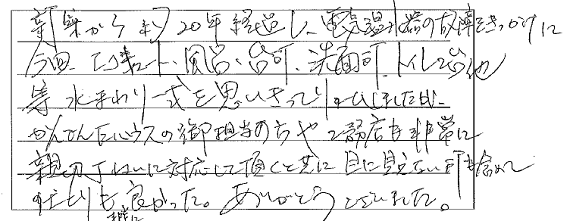 新築から約20年経過し、電気温水器の故障をきっかけに
今回、エコキュート、風呂、台所、洗面所、トイレ等他
等 水まわり一式を思いきって しましたが、
かんたんハウスの御担当の方や工務店も非常に
親切ていねいに対応して頂くと共に目に見えない所も含めて
仕上りも良かった。ありがとうございました。